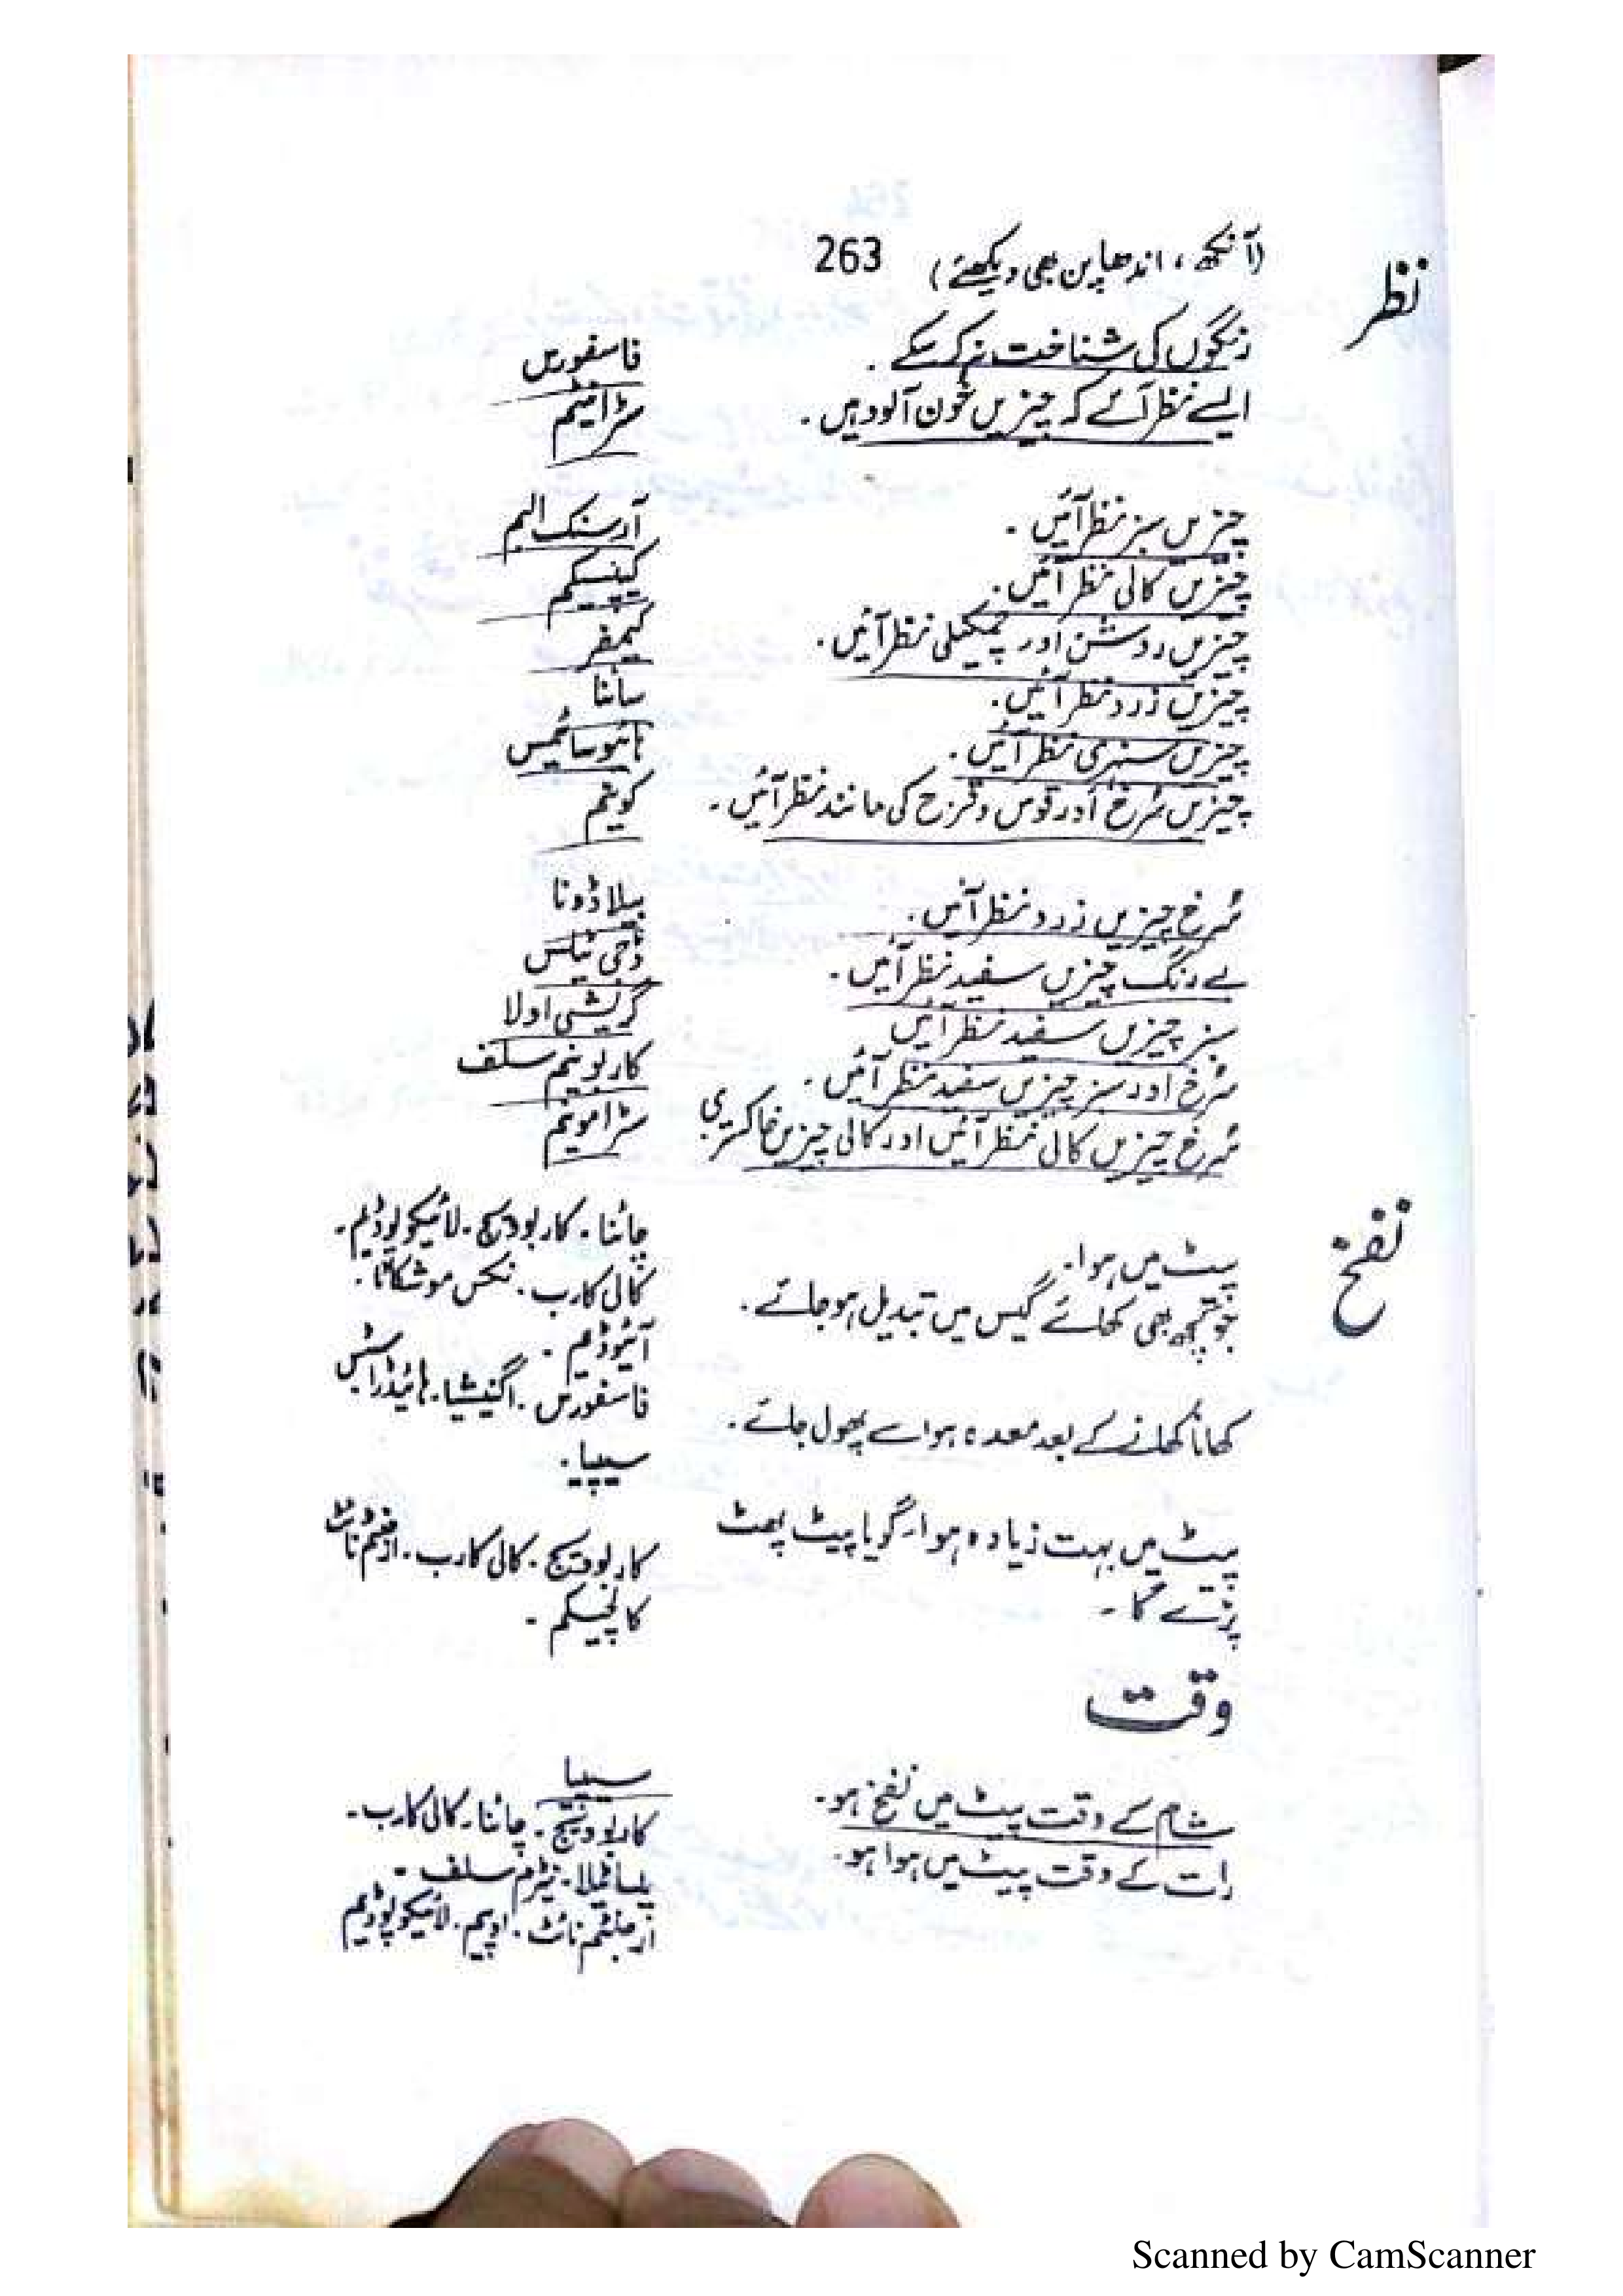 نظر
(آنکھ، اندھاپن بھی دیکھئے) 263
رنگوں کی شناخت نہ کر سکے۔ فاسفورس
ایسے نظر آئے کہ چیزیں خون آلود ہیں۔ سٹرامینم
چیزیں سبز نظر آئیں۔ آرسنک البم
چیزیں کالی نظر آئیں۔ کیپسیکم
چیزیں روشن اور چمکیلی نظر آئیں۔ کیمفر
چیزیں زرد نظر آئیں۔ سائنا
چیزیں سنہری نظر آئیں۔ ہائیوسائمس
چیزیں سُرخ اور قوس و قزح کی مانند نظر آئیں۔ کونیم
سُرخ چیزیں زرد نظر آئیں۔ بیلاڈونا
بے رنگ چیزیں سفید نظر آئیں۔ ڈجی ٹیلس
سبز چیزیں سفید نظر آئیں گریشی اولا
سُرخ اور سبز چیزیں سفید نظر آئیں۔ کاربونیم سلف
سُرخ چیزیں کالی نظر آئیں اور کالی چیزیں خاکستری سٹرامونیم
نفخ
پیٹ میں ہوا۔ چائنا۔ کاربوویج۔ لائیکوپوڈیم۔
جو کچھ بھی کھائے گیس میں تبدیل ہو جائے۔ کالی کارب۔ نکس موشکاٹا۔
آئیوڈیم۔
کھانا کھانے کے بعد معدہ ہوا سے پھول جائے۔ فاسفورس۔ اگنیشیا۔ ہائیڈراسٹس
سیپیا۔
پیٹ میں بہت زیادہ ہوا۔ گویا پیٹ پھٹ کاربوویج۔ کالی کارب۔ ارجنٹم نائٹ
پڑے گا۔ کاپسیکم۔
وقت
شام کے وقت پیٹ میں نفخ ہو۔ سیپیا
رات کے وقت پیٹ میں ہوا ہو۔ کاربوویج۔ چائنا۔ کالی کارب۔
پلساٹیلا۔ نیٹرم سلف۔
ارجنٹم نائٹ۔ اوپیم۔ لائیکوپوڈیم
Scanned by CamScanner